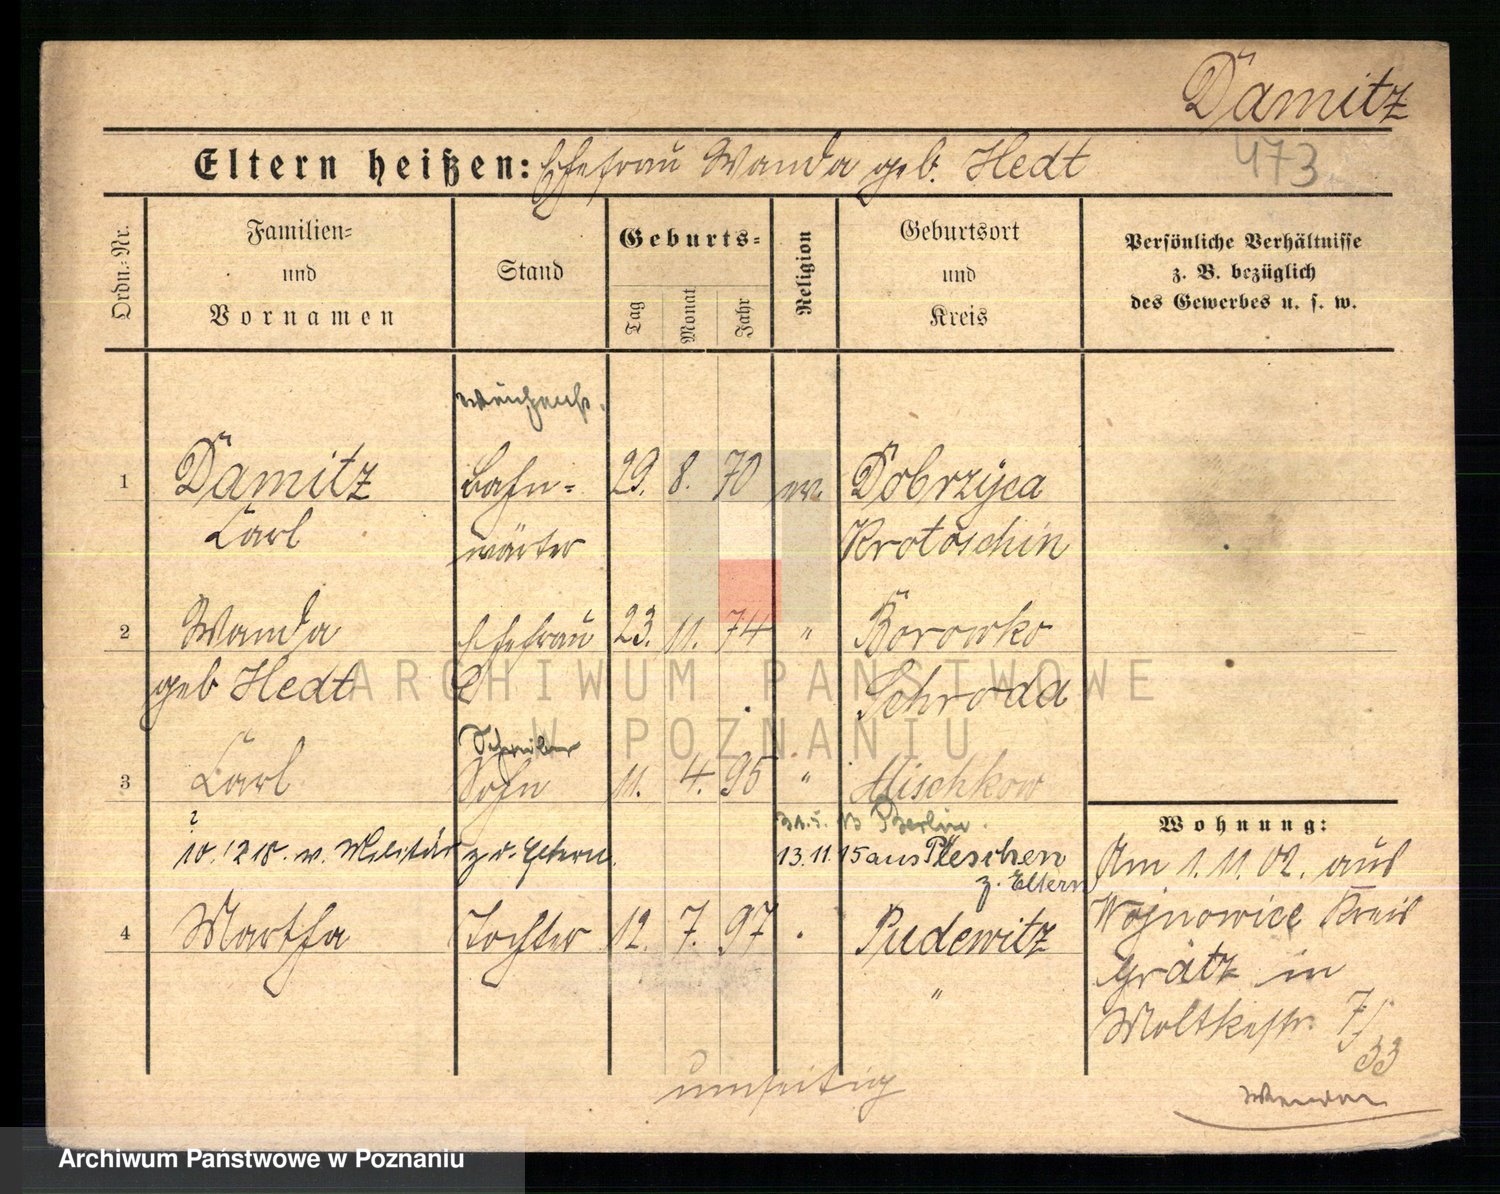 Damitz
Eltern heißen: Ehefrau Wanda geb. Hedt
473
Ordn.-Nr.
Familien-
und
Vornamen
Stand
Geburts-
Tag
Monat
Jahr
Religion
Geburtsort
und
Kreis
Persönliche Verhältnisse
z. B. bezüglich
des Gewerbes u. s. w.
1
Damitz
Carl
Bahn-
wärter
29. 8. 70
ev.
Dobrzyca
Krotoschin
2
Wanda
geb Hedt
Ehefrau
23. 11. 74
"
Borowko
Schroda
3
Carl
Schreiber
Sohn
11. 4. 95
"
Mischkow
31.5. 13 Berlin.
10. 12 18. v. Militär z. d. Eltern.
13.11.15 aus Pleschen
z. Eltern
4
Martha
Tochter
12. 7. 97
Pudewitz
"
Wohnung:
Am 1. 11. 02. aus
Wojnowice Kreis
Grätz in
Moltkestr. 7/
33
umseitig
ARCHIWUM PAŃSTWOWE
W POZNANIU
Archiwum Państwowe w Poznaniu